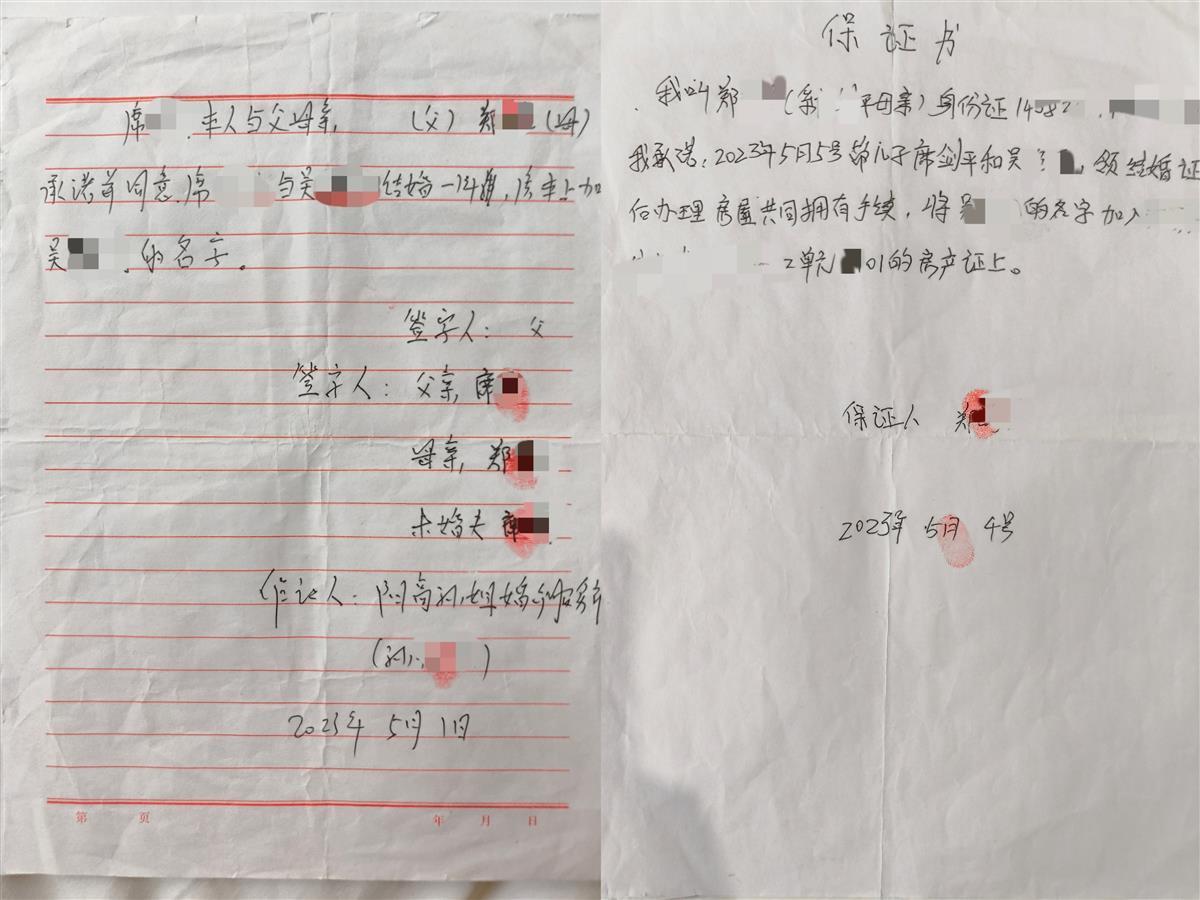 席 本人与父母亲, (父) 郑 (母)
承诺前同意席 与吴 结婚一年后,房本上加
吴 的名字。
签字人: 父
签字人: 父亲, 席
母亲, 郑
未婚夫 席
(孙小 )
2023年 5月 1日
第 页 年 月 日
保证书
我叫郑 (系 平母亲)身份证14082
我承诺:2023年5月5号前儿子席剑平和吴 领结婚证
后办理房屋共同拥有手续,将吴 的名字加入
2单元 01的房产证上。
保证人 郑
2023年 5月 4号